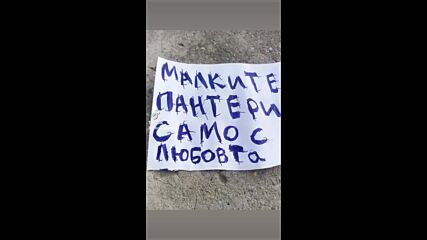 МАЛКИТЕ
ПАНТЕРИ
САМО С
ЛЮБОВТа